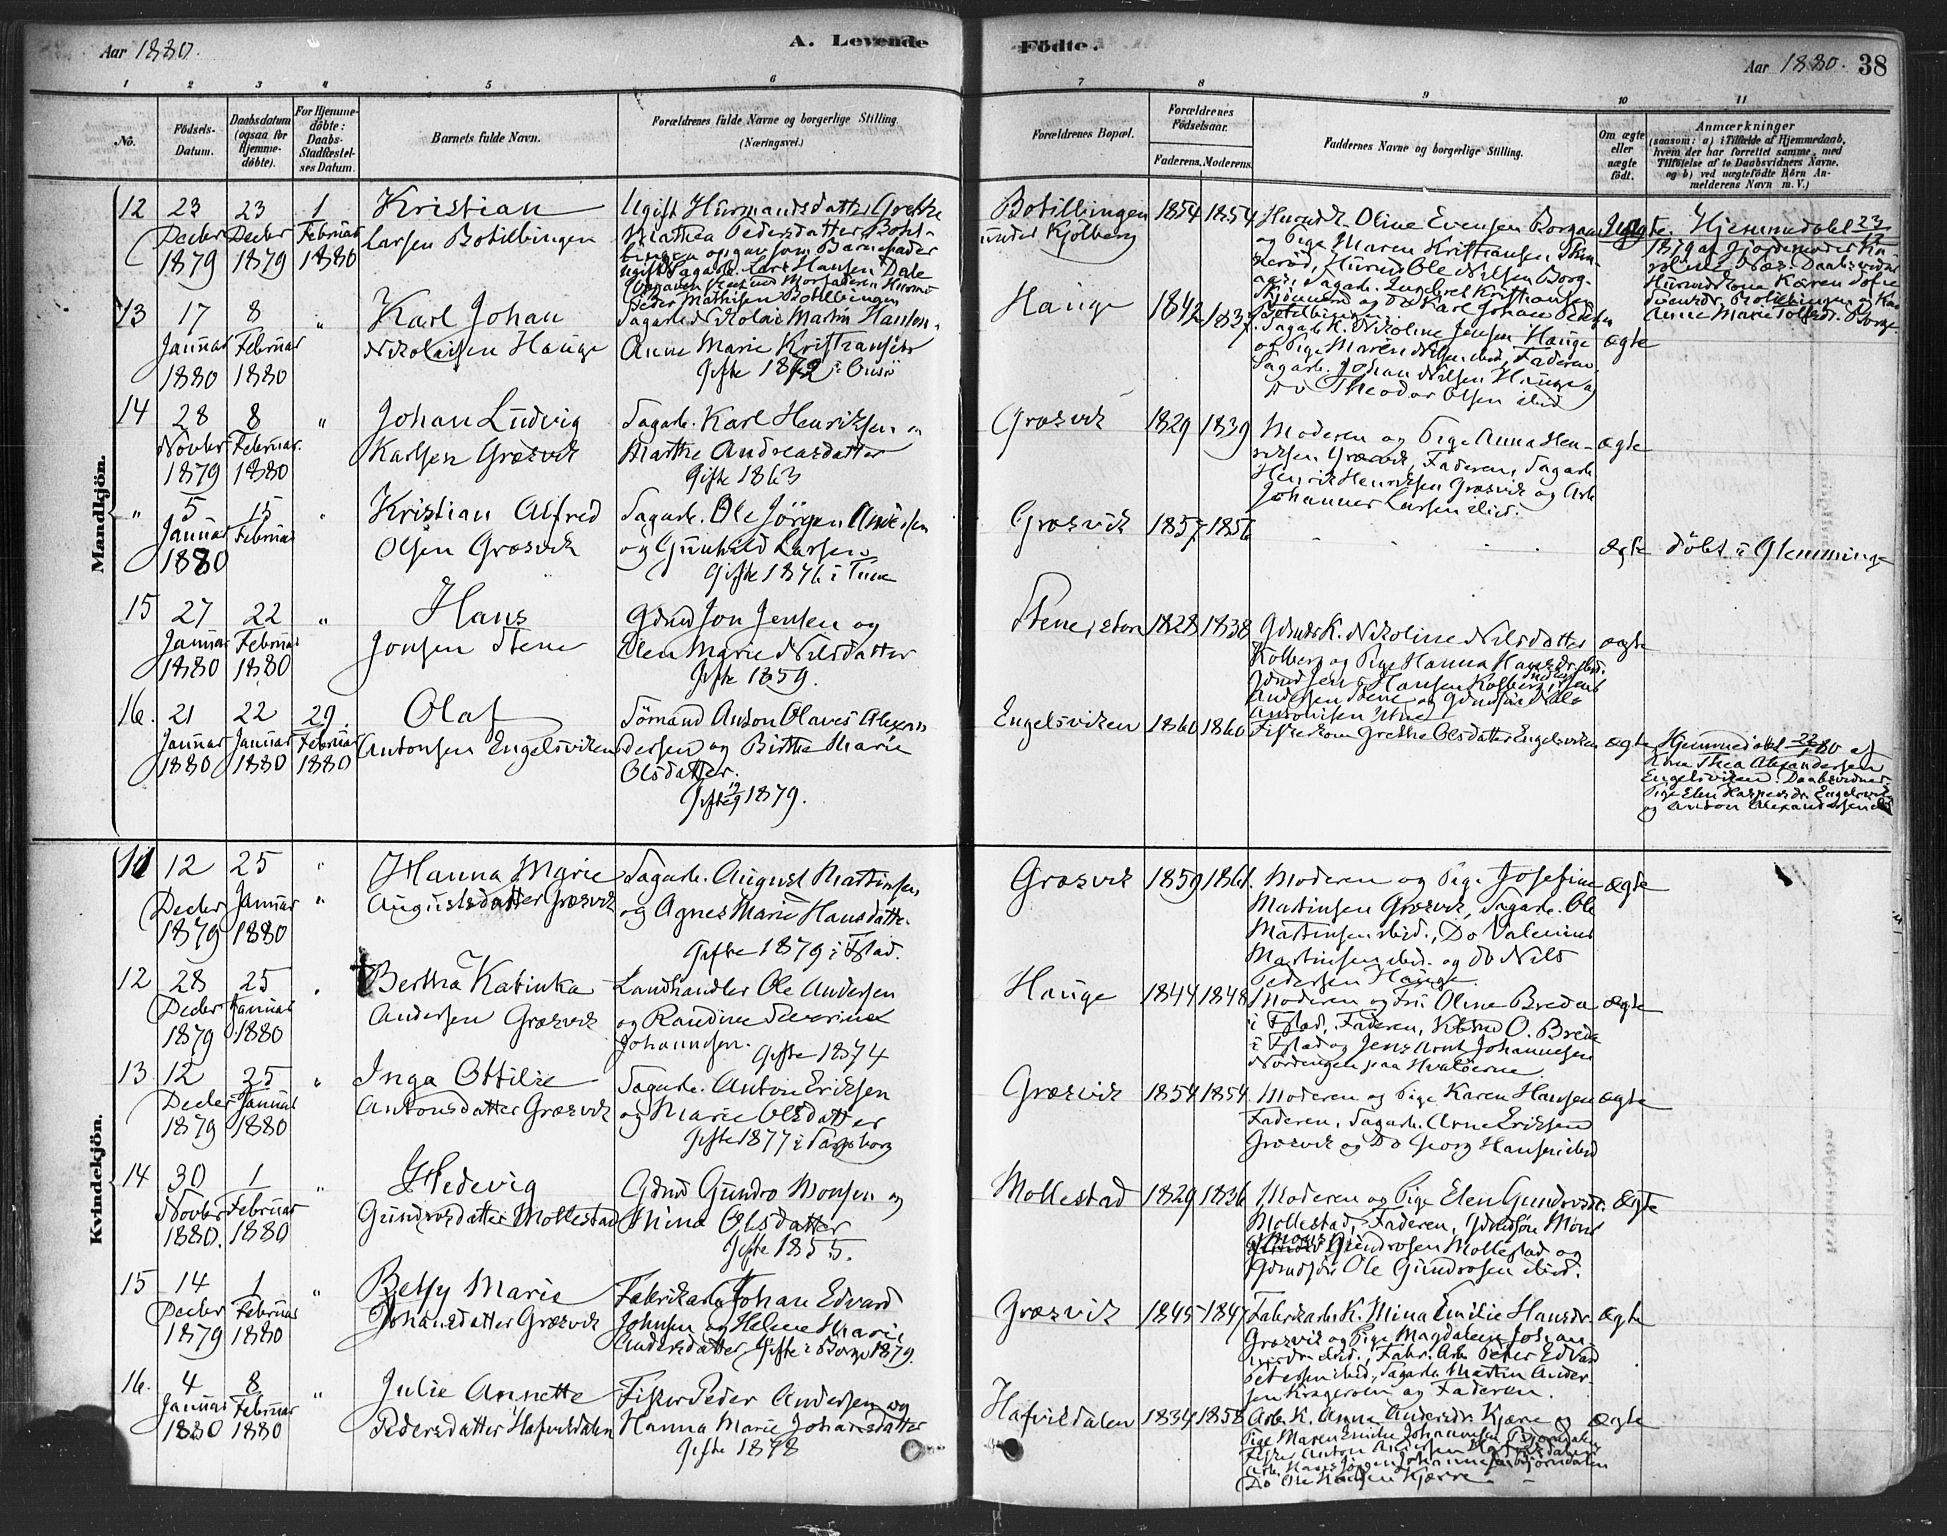 Aar 1880.
A. Levende
Födte.
Aar 1880. 38
1 2 3 4 5 6 7 8 9 10 11
No.
Födsels-
Datum.
Daabsdatum
(ogsaa for
Hjemme-
døbte).
For Hjemme-
døbte:
Daabs-
Stadfæstel-
ses Datum.
Barnets fulde Navn.
Forældrenes fulde Navne og borgerlige Stilling.
(Næringsvei.)
Forældrenes Bopæl.
Forældrenes
Födselsaar.
Faderens. Moderens.
Faddernes Navne og borgerlige Stilling.
Om ægte
eller
uægte
født.
Anmærkninger
(saasom: a) i Tilfælde af Hjemmedaab,
hvem der har forrettet samme, med
Tilføielse af to Daabsvidners Navne,
og b) ved uægtefödte Börn An-
melderens Navn m. V.)
Mandkjön.
12
23
Decbr
1879
23
Decbr
1879
1
Februar
1880
Kristian
Larsen Botilbingen
Ugift Huusmandsdatter Grethe
Mathea Pedersdatter
opgav som Barnefader
ugift Sagarb. Lars Hansen Dale
Botillingen
under Kjølberg
1854 1854
Oline Evensen Borgaas
og Pige Maren Kristiansen
Ole Nilsen Borg-
Karl Johan
uægte.
Hjemmedøbt 23
1879 af Gjordemoder
Daabsvidner
Karen Sofie
Anne Marie
13
17
Januar
1880
8
Februar
1880
"
Karl Johan
Nikolaisen Hauge
Sagarb. Nikolai Martin Hansen
Anne Marie Kristiansdtr
Gifte 1872 i Onsø
Hauge
1842 1837
Sagarb. K. Nikoline Jensen Hauge
og Pige Maren Nilsen ibid, Faderen
Sagarb. Johan Nilsen Hauge og
Do Theodor Olsen ibid
ægte
14
28
Novbr
1879
8
Februar
1880
"
Johan Ludvig
Karlsen Græsvik
Sagarb. Karl Henriksen og
Marthe Andreasdatter
Gifte 1863
Græsvik
1829 1839
Moderen og Pige Anna Hen-
riksen Græsvik, Faderen, Sagarb
Henrik Henriksen Græsvik og Arb
Johannes Larsen ibid.
ægte
"
5
Januar
1880
15
Februar
"
Kristian Alfred
Olsen Græsvik
Sagarb. Ole Jörgen Andersen
og Gunhild Larsen
Gifte 1876 i Tune
Græsvik
1857 1856
ægte
döbt i Glemminge
15
27
Januar
1880
22
Februar
1880
"
Hans
Jonsen Stene
Gdmd Jon Jensen og
Elen Marie Nilsdatter
Gifte 1859.
Stene, store
1828 1838
Gdmds K. Nikoline Nilsdatter
Kolberg og Pige Hanna
Hansen Kolberg, Jens
Andersen Stene og Gdmdsøn
Antonisen Utne
ægte
16.
21
Januar
1880
22
Januar
1880
29.
Februar
1880
Olaf
Antonsen Engelsviken
Sömand Anton Olaves Alexan-
dersen og Birthe Marie
Olsdatter.
Gifte 1879.
Engelsviken
1860 1860
Fiskerkone Grethe Olsdatter Engelsviken
ægte
Hjemmedøbt 22/1 80 af
Kone Thea Alexandersen
Engelsviken. Daabsvidner
Pige Elen Engelsvik
og Anton Alexandersen ibid
Kvindekjön.
11
12
Decbr
1879
25
Januar
1880
"
Hanna Marie
Augustsdatter Græsvik
Sagarb. August Martinsen
og Agnes Marie Hansdatter
Gifte 1879 i Fstad.
Græsvik
1859 1861.
Moderen og Pige Josefine
Martinsen Græsvik, Sagarb. Ole
Martinsen ibid., Do Valenius
Martinsen ibid. og do Nils
Pedersen Hauge.
ægte
12
28
Decbr
1879
25
Januar
1880
"
† Bertha Katinka
Andersen Græsvik
Landhandler Ole Andersen
og Randine Severine
Johannesen. Gifte 1874
Hauge
1844 1848
Moderen og Fru Oline Breda
i Fstad, Faderen, O. Breda
i Fstad og Jens Arnt Johannesen
Nordengen paa Hvaløerne.
ægte
13
12
Decbr
1879
25
Januar
1880
"
Inga Ottilie
Antonsdatter Græsvik
Sagarb. Anton Eriksen
og Marie Olsdatter
Gifte 1877 i Sarpsborg
Græsvik
1854 1854
Moderen og Pige Karen Hansen
Faderen, Sagarb. Arne Eriksen
Græsvik og Do Georg Hansen ibid
ægte
14
30
Novbr
1880.
1
Februar
1880
"
Hedevig
Gundrosdatter Mollestad
Gdmd Gundro Monsen og
Mina Olsdatter
Gifte 1855.
Mollestad
1829 1836
Moderen og Pige Elen Gundrosdtr.
Mollestad, Faderen, Gdmdsøn Mons
Gundrosen Mollestad og
Gdmdsøn Ole Gundrosen ibid.
Ægte
15
14
Decbr
1879
1
Februar
1880
"
Betsy Marie
Johansdatter Græsvik
Fabrikarb. Johan Edvard
Johnsen og Helene Marie
Andersdatter, Gifte i Borge 1879.
Græsvik
1845 1847
Fabrikarb. K. Mina Emilie Hansdr.
Græsvik og Pige Magdalene Johan-
ibid., Fabr. Arb Peter Edvard
Petersen ibid, Sagarb. Martin Ander-
sen Kragerøen og Faderen.
Ægte
16.
4
Januar
1880
8
Februar
1880
"
Julie Annette
Pedersdatter Hafvikdalen
Fisker Peder Andersen og
Hanna Marie Johansdatter
Gifte 1878
Hafvikdalen
1834 1858
Arb. K. Anna Andersdr. Kjære og
Pige Maren Emilie Johannesen Bjørndalen
Fisker Anton Andersen Hafvikdalen
Arb. Hans Jørgen Johannesen Bjørndalen
Do Ole Hansen Kjærre
Ægte